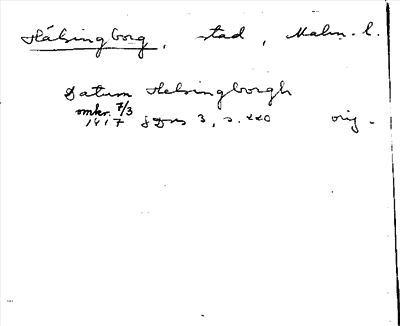 Hälsingborg, stad, Malm. l.
Datum Helsingborgh
omkr. 7/3
1417 3, s. 220 orig.